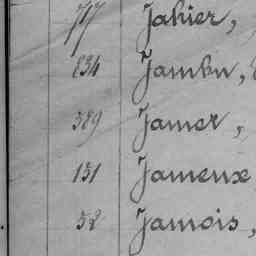 717 Jahier,
834 Jambu,
389 Jamer,
151 Jameux
52 Jamois,